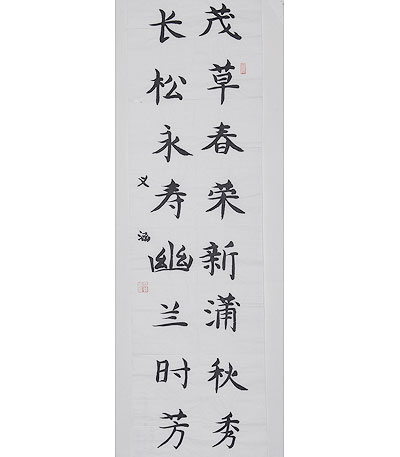 茂草春荣新蒲秋秀
长松永寿幽兰时芳
义涵